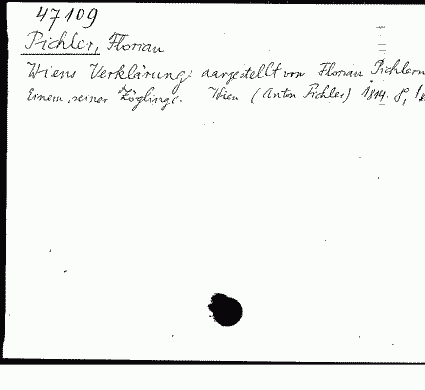 47109
Pichler, Florian
Wiens Verklärung; dargestellt von Florian Pichler
Einem seiner Zöglinge. Wien (Anton Pichler) 1814. 8,